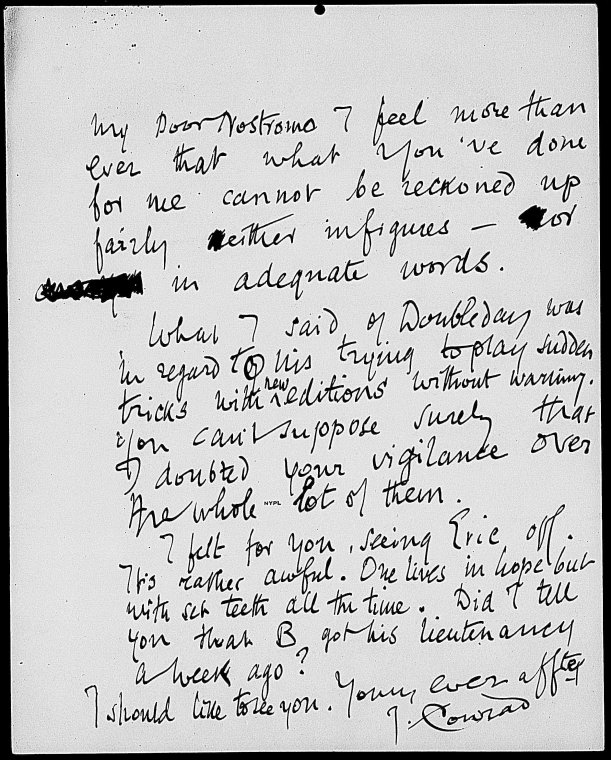 my poor Nostromo I feel more than
ever that what you've done
for me cannot be reckoned up
fairly neither in figures — nor
in adequate words.
What I said of Doubleday was
in regard to his trying to play sudden
tricks with new editions without warning.
You can't suppose surely that
I doubted your vigilance over
the whole lot of them.
NYPL
I felt for you, seeing Eric off.
It's rather awful. One lives in hope but
with set teeth all the time. Did I tell
you that B got his lieutenancy
a week ago?
I should like to see you. Yours ever afftely
J. Conrad